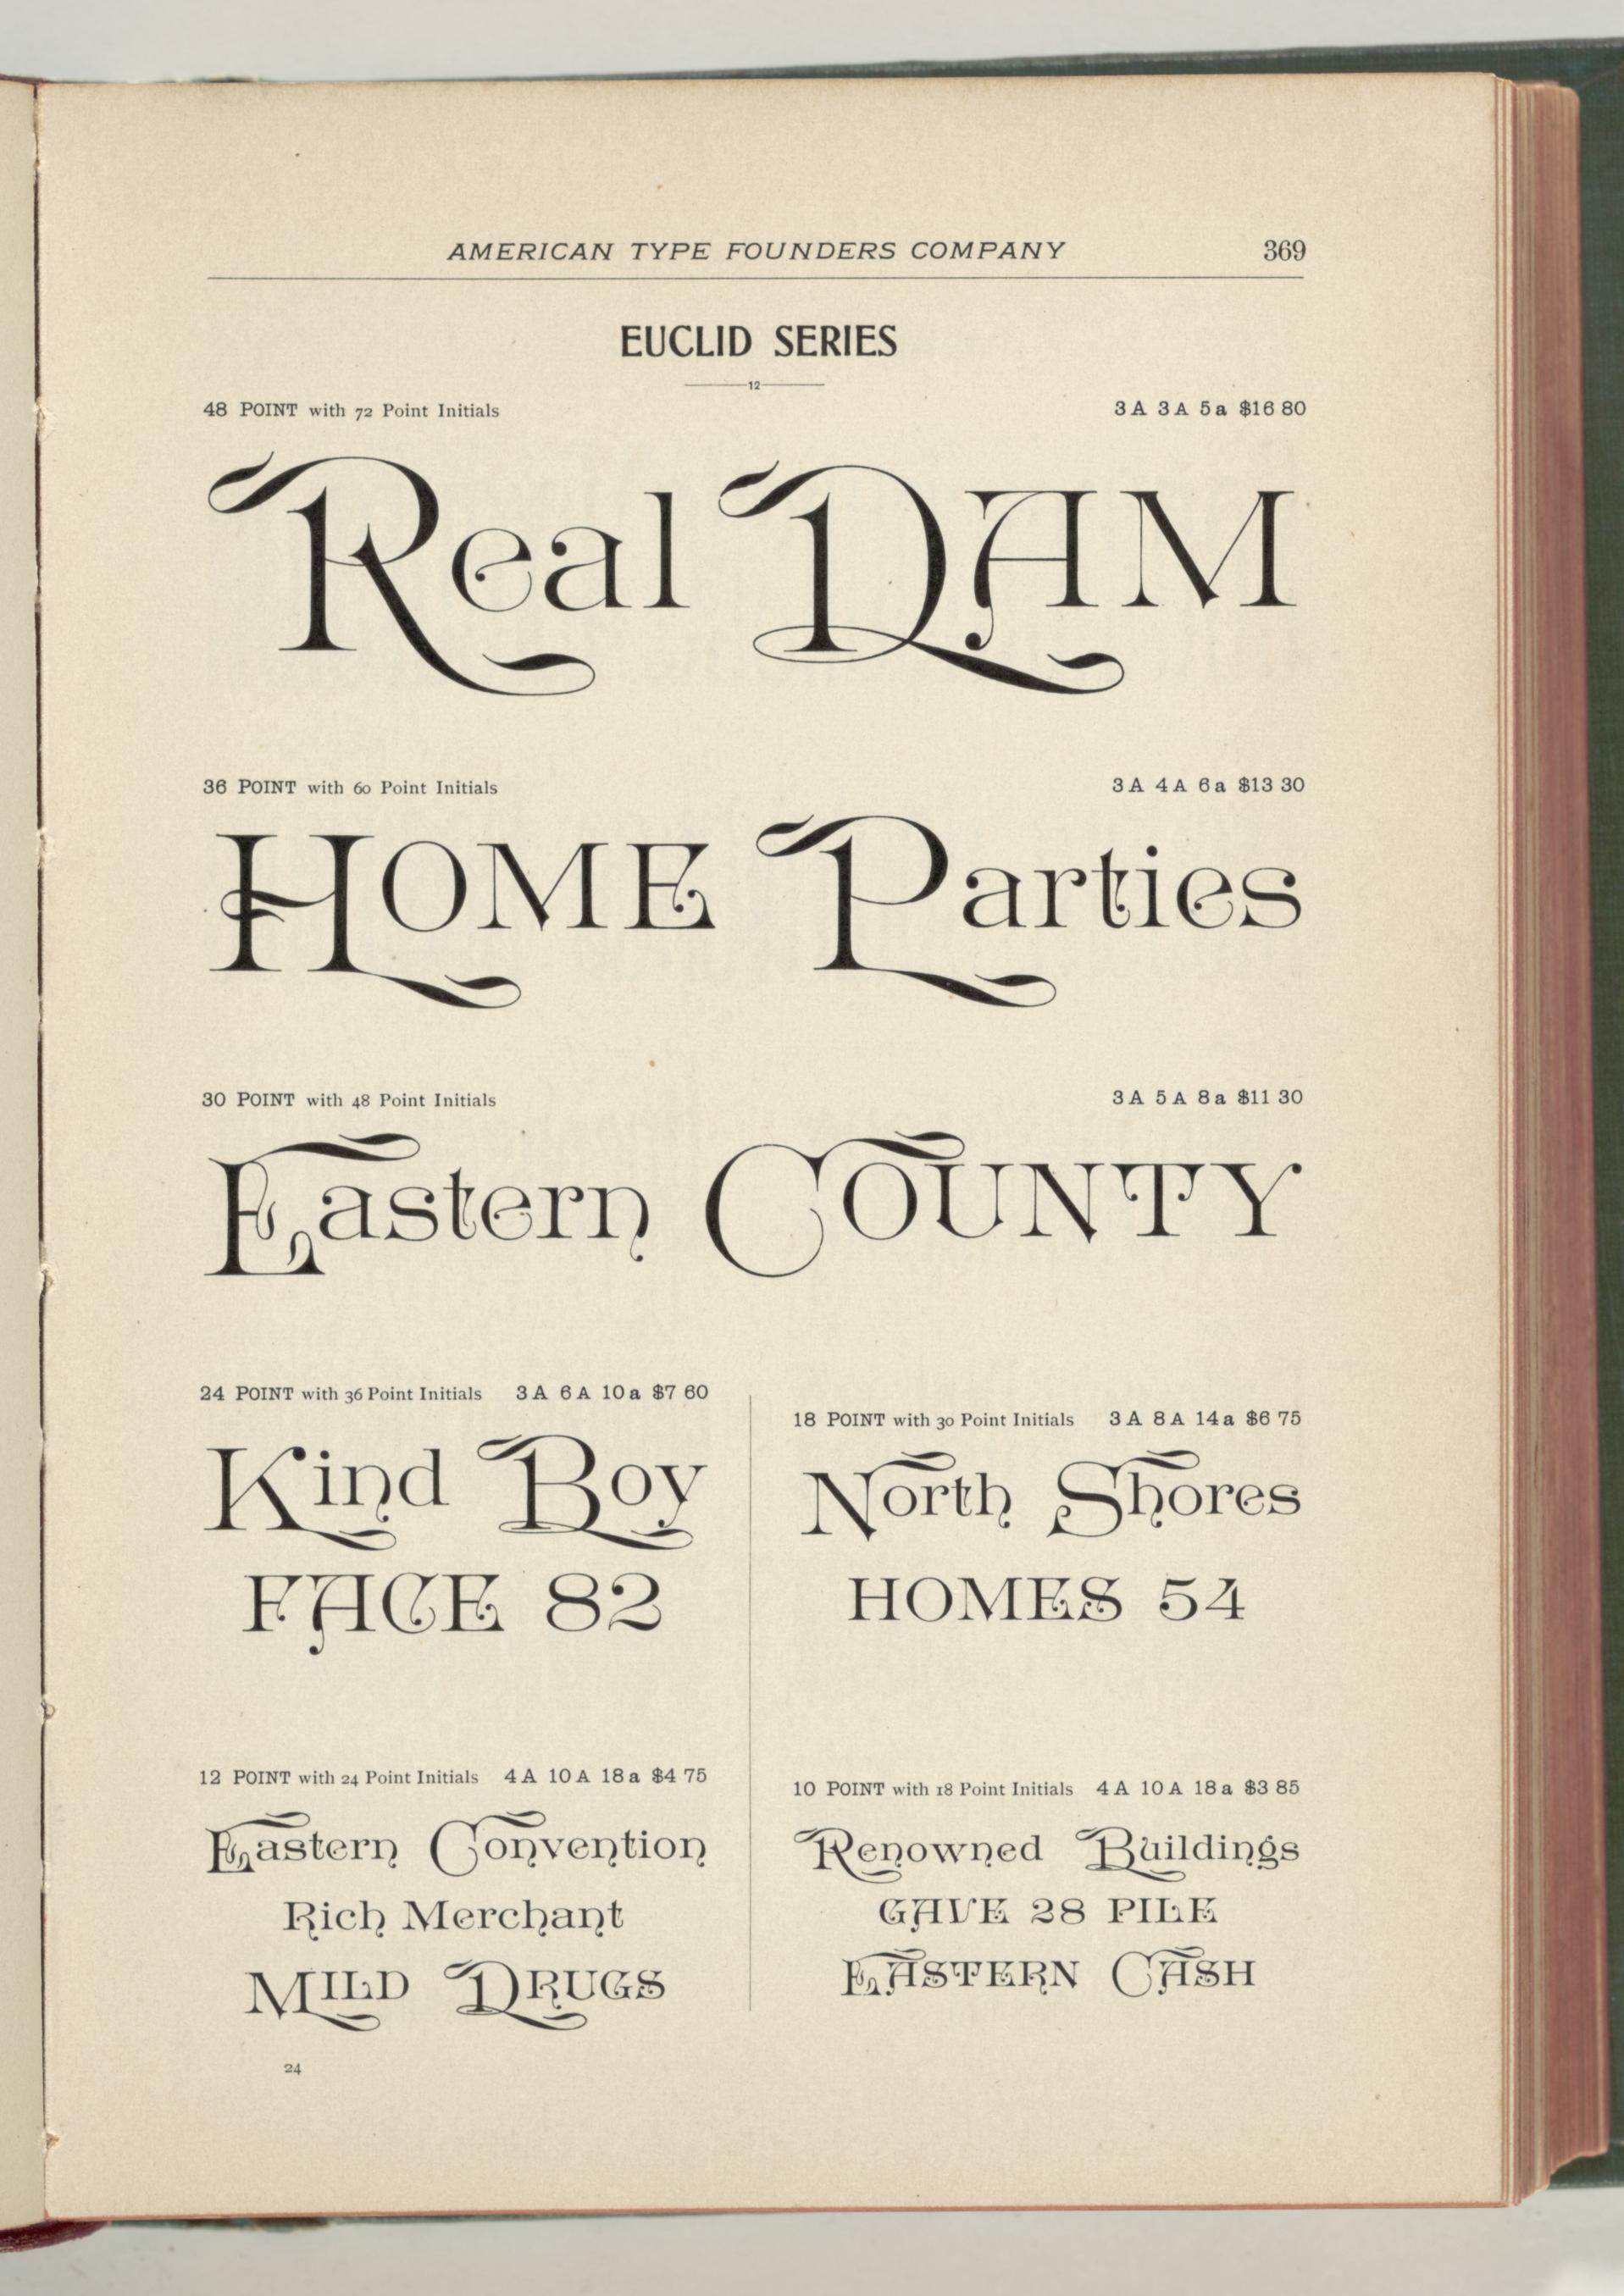 AMERICAN TYPE FOUNDERS COMPANY 369
EUCLID SERIES
12
48 POINT with 72 Point Initials 3 A 3 A 5 a $16 80
Real DAM
36 POINT with 60 Point Initials 3 A 4 A 6 a $13 30
HOME Parties
30 POINT with 48 Point Initials 3 A 5 A 8 a $11 30
Eastern COUNTY
24 POINT with 36 Point Initials 3 A 6 A 10 a $7 60
Kind Boy
FACE 82
18 POINT with 30 Point Initials 3 A 8 A 14 a $6 75
North Shores
HOMES 54
12 POINT with 24 Point Initials 4 A 10 A 18 a $4 75
Eastern Convention
Rich Merchant
MILD DRUGS
10 POINT with 18 Point Initials 4 A 10 A 18 a $3 85
Renowned Buildings
GAVE 28 PILE
EASTERN CASH
24